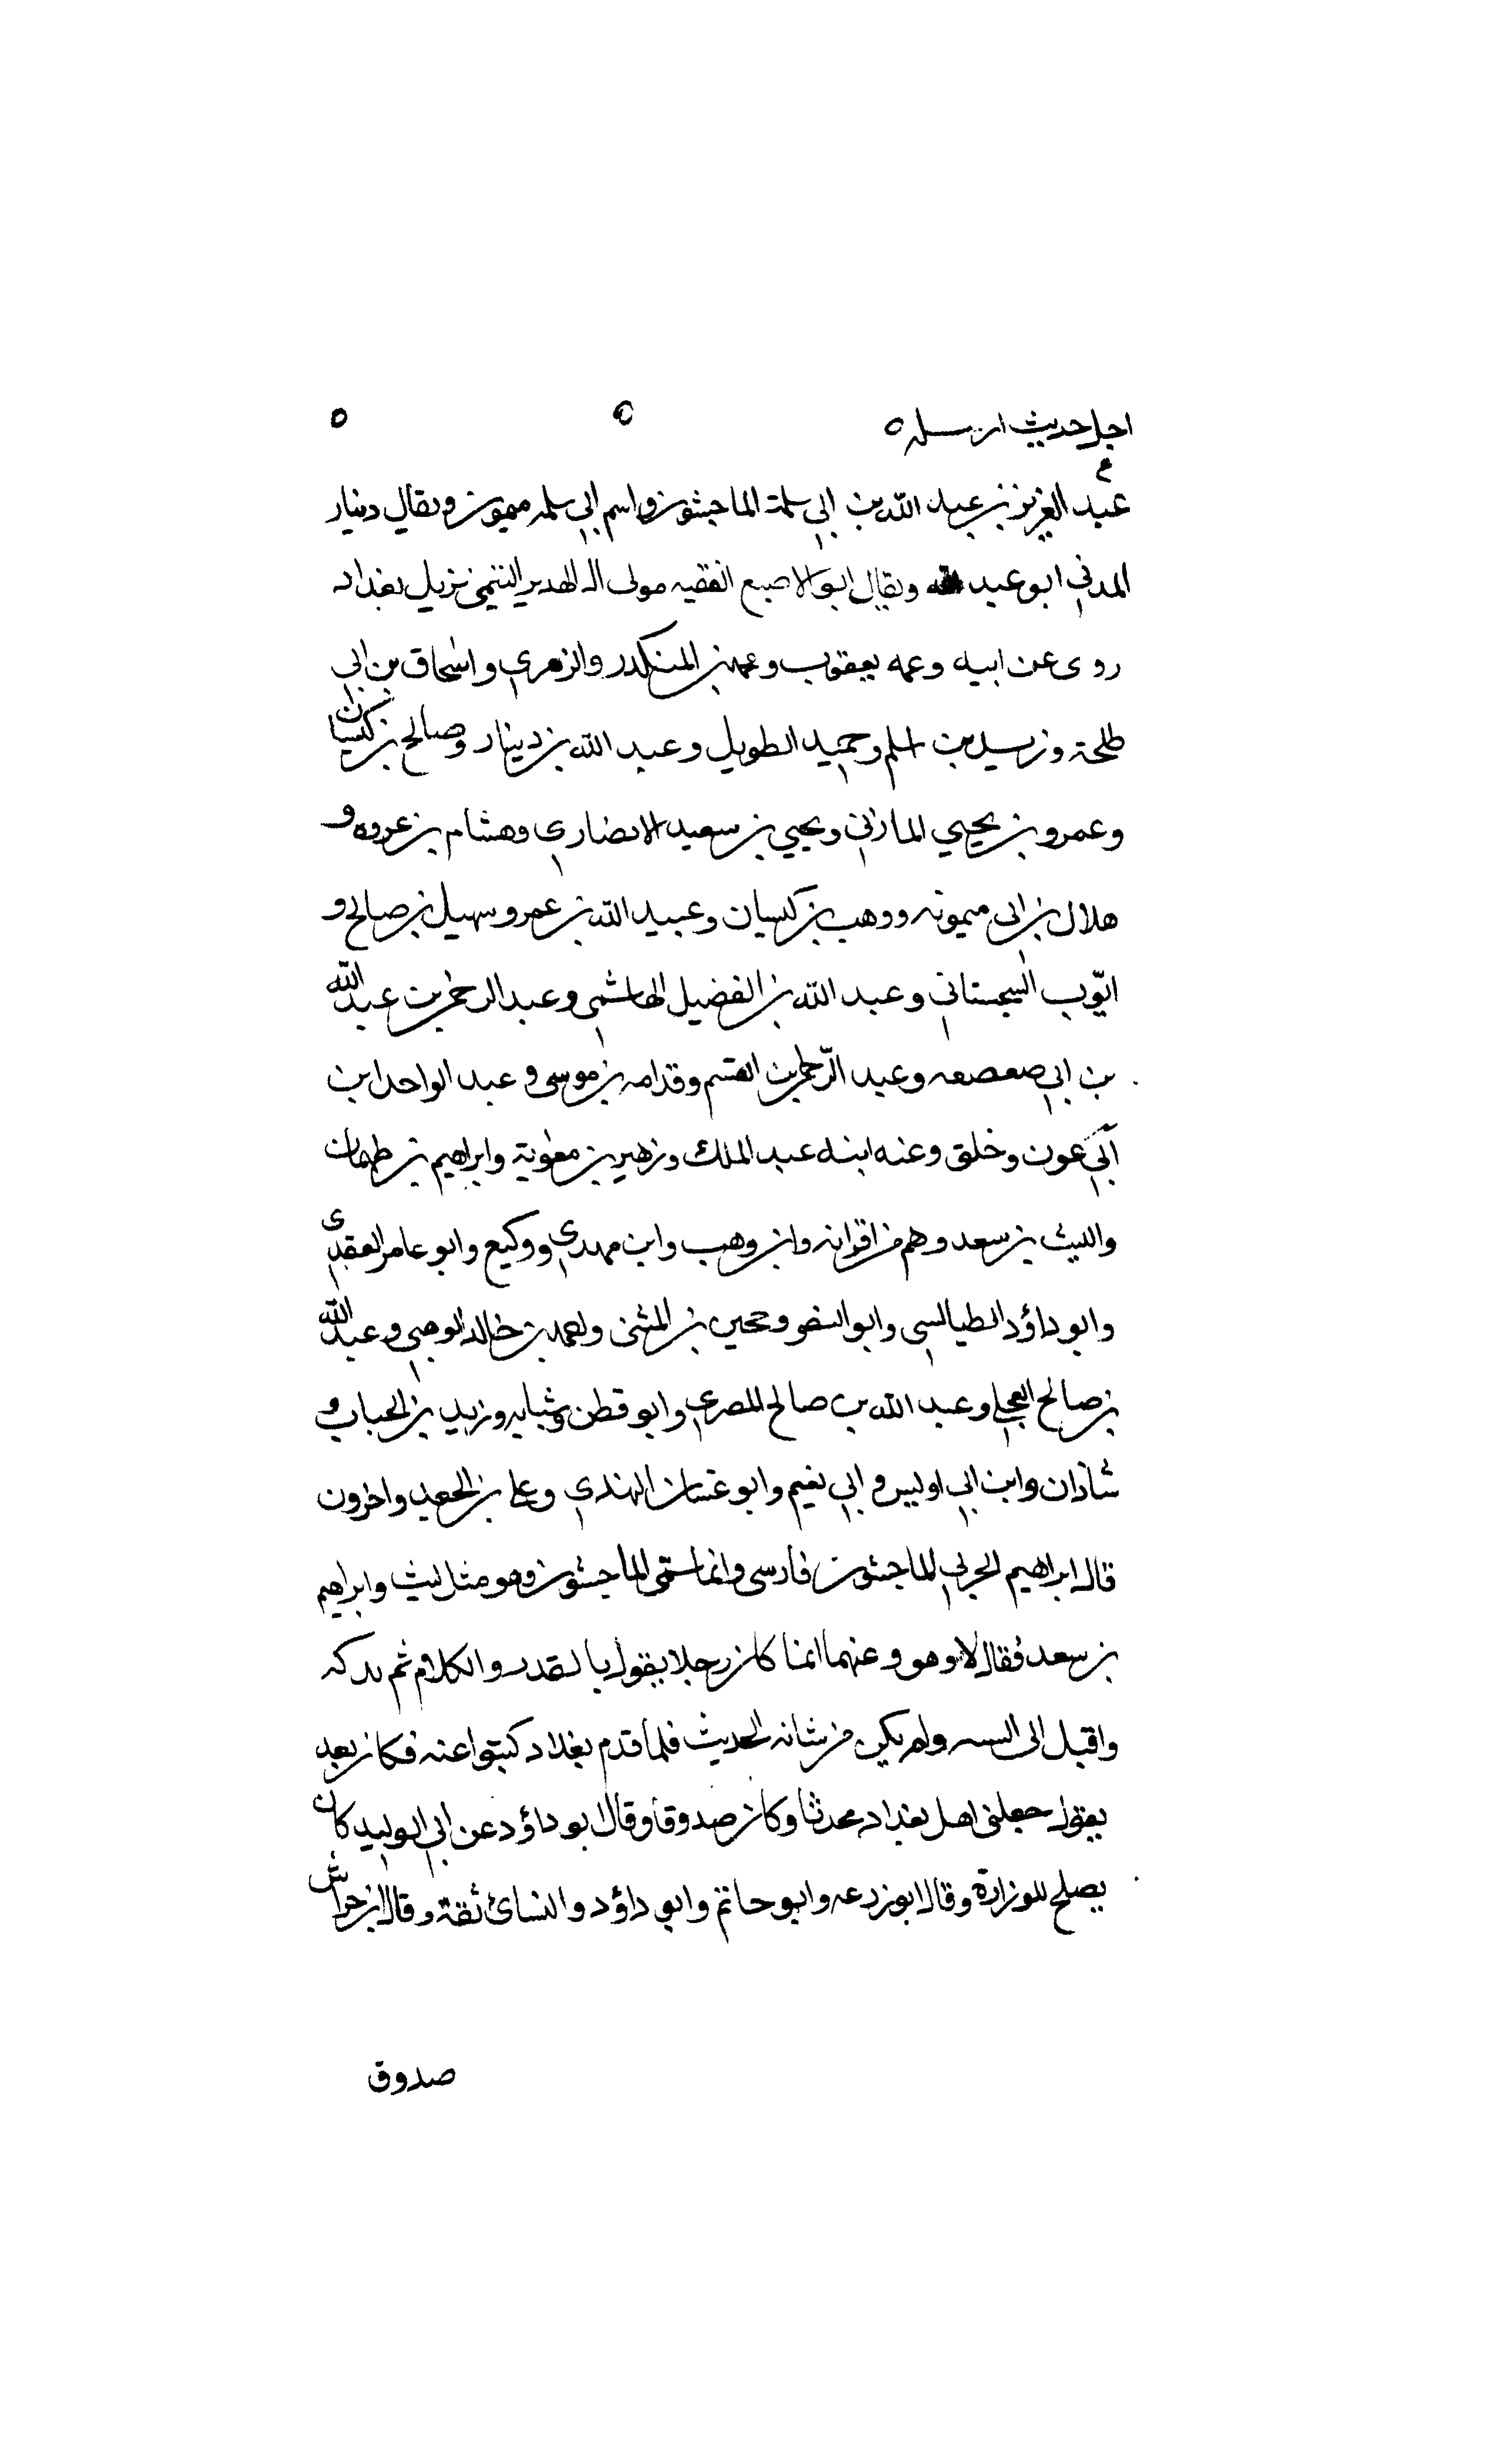 اجل حديث ارسله ه ه ه
ع
عبد العزيز بن عبد الله بن ابي سلمة الماجشون واسم ابي سلمه ميمون ويقال دينار
المدني ابو عبد الله ويقال ابو الاصبع الفقيه مولى ال الهدير التيمي نزيل بغداد
روى عن ابيه وعمه يعقوب ومحمد بن المنكدر والزهري واسحاق بن ابي
طلحة وزيد بن اسلم وحميد الطويل وعبد الله بن دينار وصالح بن كيسان
وعمرو بن يحيي المازني ويحيي بن سعيد الانصاري وهشام بن عروه و
هلال بن ابي ميمونه ووهب بن كيسان وعبيد الله بن عمر وسهيل بن صالح و
ايّوب السجستاني وعبد الله بن الفضيل الهاشمي وعبد الرحمن بن عبد الله
بن ابي صعصعه وعبد الرّحمن بن القسم وقدامه بن موسى و عبد الواحد ابن
ابي عون وخلق وعنه ابنه عبد الملك وزهير بن معٰوية وابراهيم بن طهمان
والليث بن سعد وهم من اقرانه وابن وهب وابن مهدي ووكيع وابو عامر العقدي
وابو داؤد الطيالسي وابو النضر وحجين بن المثنى واحمد بن خالد الوهبي وعبد الله
بن صالح العجلي وعبد الله بن صالح المصري وابو قطن وشبابه وزيد بن الحباب و
شاذان وابن ابي اويس و ابي نعيم وابو غسان النهدي وعلي بن الجعد واخرون
قال ابراهيم الحربي الماجشون فارسي وانما سمّي الماجشون وهو مثل ليث وابراهيم
بن سعد فقال لا وهو وعنهما انما كان رجلا يقول بالقدر والكلام ثم تركه
واقبل الى السنه ولم يكن من شانه الحديث فلما قدم بغداد كتبوا عنه فكان بعد
يقول جعلني اهل بغداد محدثا وكان صدوقا وقال ابو داؤد عن ابي الوليد كان
يصلح للوزارة وقال ابو زرعه وابو حاتم وابو داؤد والنسائ ثقة وقال ابن خراش
صدوق